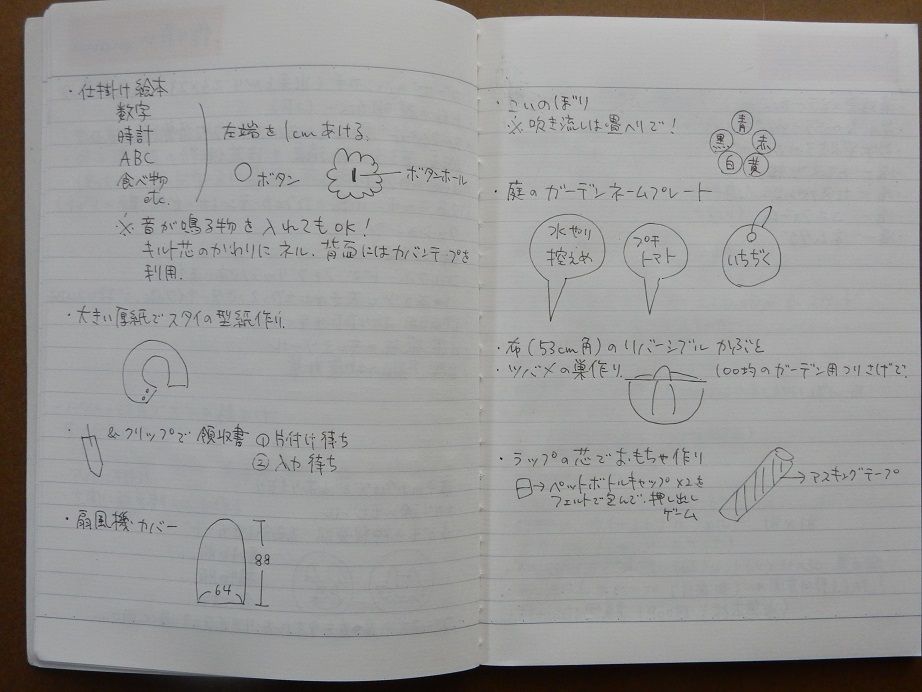 ・仕掛け絵本
数字
時計
ABC
食べ物
etc.
左端を1cmあける.
ボタン
ボタンホール
※音が鳴る物を入れてもOK!
キルト芯のかわりにネル. 背面にはカバンテープを
利用.
・大きい厚紙でスタイの型紙作り.
・&クリップで領収書 ①片付け待ち
②入力待ち
・扇風機カバー
88
64
・こいのぼり
※吹き流しは畳へりで!
青
黒
赤
白
黄
・庭のガーデンネームプレート
水やり
控えめ
プチ
トマト
いちぢく
・布(53cm角)のリバーシブル かぶごと
・ツバメの巣作り.
100均のガーデン用つりさげで.
・ラップの芯でおもちゃ作り
→ペットボトルキャップ×2を
フェルトで包んで. 押し出し
ゲーム
→マスキングテープ